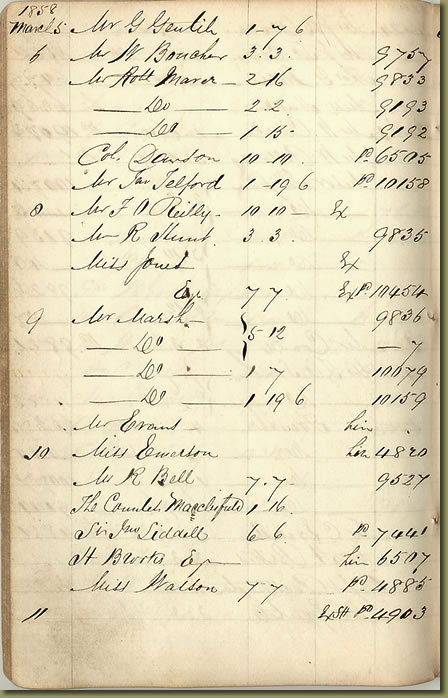 1858
March 5 Mr G Gentili 1-7 6
5 Mr W Boucher 3.3. 9757
Mr Robt Marer 2 16 9833
Do 2.2 9193
Do 1 15- 9192
Col. Dawson 10-10. Pd 6505
Mr Jas Telford 1-19 6 Pd 10158
8 Mr F O Reilly 10 10- Ex
Mr R Hunt 3.3. 9835
Miss Jones Ex
7 7. Ex Pd 10454
9 Mr Marsh 5-12 9836
Do 7
Do 1 7 10079
Do 1 19 6 10159
Mr Evans hir
10 Miss Emerson hir 4820
Mr R Bell 7.7. 9527
The Countess Macclesfield 1.16.
Sir Jno Liddell 6 6. Pd 7441
H Brooks Esq hir 6507
Miss Watson 7 7 Pd 4885
11 Pd 4903